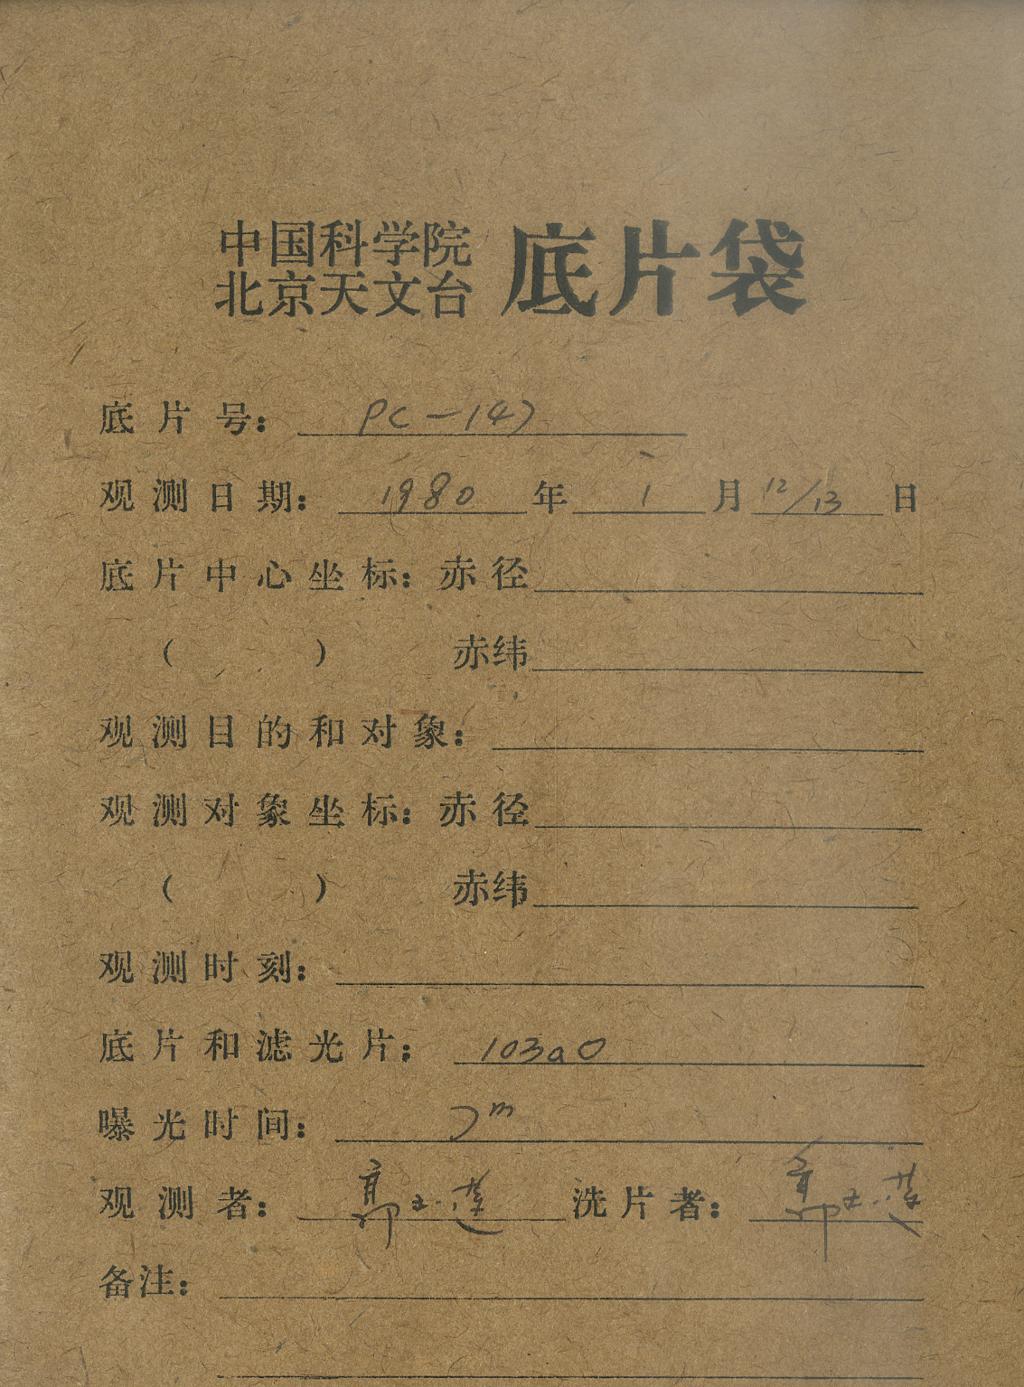 中国科学院
北京天文台 底片袋
底片号： PC-147
观测日期： 1980 年 1 月 12/13 日
底片中心坐标：赤径
（ ） 赤纬
观测目的和对象：
观测对象坐标：赤径
（ ） 赤纬
观测时刻：
底片和滤光片； 103aO
曝光时间： 7m
观测者： 洗片者：
备注：